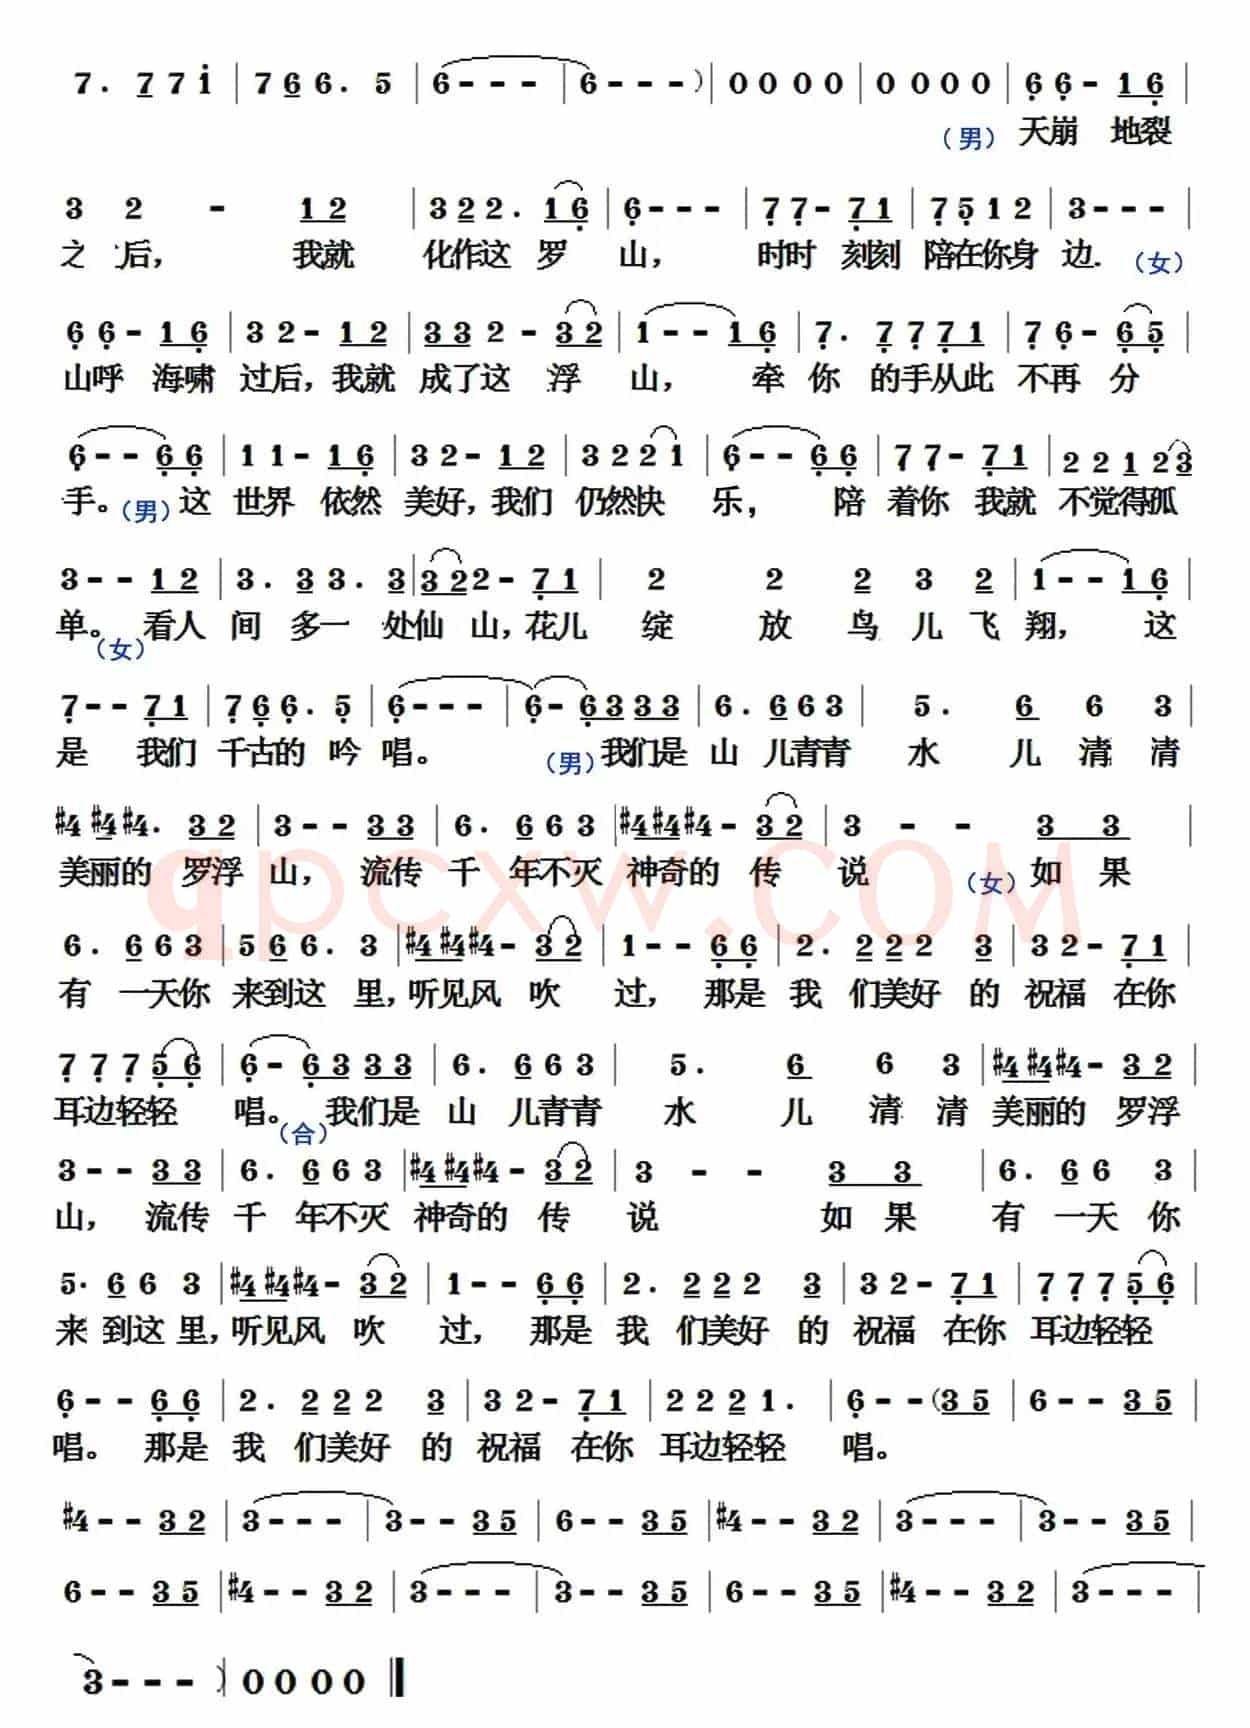 7. 7 7 i | 7 6 6. 5 | 6 - - - | 6 - - - ) | 0 0 0 0 | 0 0 0 0 | 6 6 - 1 6 |
（男） 天崩 地裂
3 2 - 1 2 | 3 2 2. 1 6 | 6 - - - | 7 7 - 7 1 | 7 5 1 2 | 3 - - - |
之 后， 我就 化作这 罗 山， 时时 刻刻 陪在你身 边. （女）
6 6 - 1 6 | 3 2 - 1 2 | 3 3 2 - 3 2 | 1 - - 1 6 | 7. 7 7 7 1 | 7 6 - 6 5 |
山呼 海啸 过后，我就 成了这 浮 山， 牵 你 的手从此 不再 分
6 - - 6 6 | 1 1 - 1 6 | 3 2 - 1 2 | 3 2 2 1 | 6 - - 6 6 | 7 7 - 7 1 | 2 2 1 2 3
手。（男） 这 世界 依然 美好，我们 仍然快 乐， 陪 着你 我就 不觉得孤
3 - - 1 2 | 3. 3 3. 3 | 3 2 2 - 7 1 | 2 2 2 3 2 | 1 - - 1 6 |
单。（女） 看人 间 多一 处仙 山，花儿 绽 放 鸟 儿 飞 翔， 这
7 - - 7 1 | 7 6 6. 5 | 6 - - - | 6 - 6 3 3 3 | 6. 6 6 3 | 5. 6 6 3 |
是 我们 千古的 吟 唱。 （男） 我们是 山 儿青青 水 儿 清 清
#4 #4 #4. 3 2 | 3 - - 3 3 | 6. 6 6 3 | #4 #4 #4 - 3 2 | 3 - - 3 3 |
美丽的 罗浮 山， 流传 千 年不灭 神奇的 传 说 （女） 如 果
qpcxw.COM
6. 6 6 3 | 5 6 6. 3 | #4 #4 #4 - 3 2 | 1 - - 6 6 | 2. 2 2 2 3 | 3 2 - 7 1 |
有 一天你 来到这 里，听见风 吹 过， 那是 我 们美好 的 祝福 在你
7 7 7 5 6 | 6 - 6 3 3 3 | 6. 6 6 3 | 5. 6 6 3 | #4 #4 #4 - 3 2 |
耳边轻轻 唱。（合） 我们是 山 儿青青 水 儿 清 清 美丽的 罗浮
3 - - 3 3 | 6. 6 6 3 | #4 #4 #4 - 3 2 | 3 - - 3 3 | 6. 6 6 3 |
山， 流传 千 年不灭 神奇的 传 说 如 果 有 一天 你
5. 6 6 3 | #4 #4 #4 - 3 2 | 1 - - 6 6 | 2. 2 2 2 3 | 3 2 - 7 1 | 7 7 7 5 6 |
来 到这 里，听见风 吹 过， 那是 我 们美好 的 祝福 在你 耳边轻轻
6 - - 6 6 | 2. 2 2 2 3 | 3 2 - 7 1 | 2 2 2 1. | 6 - - (3 5 | 6 - - 3 5 |
唱。 那是 我 们美好 的 祝福 在你 耳边轻轻 唱。
#4 - - 3 2 | 3 - - - | 3 - - 3 5 | 6 - - 3 5 | #4 - - 3 2 | 3 - - - | 3 - - 3 5 |
6 - - 3 5 | #4 - - 3 2 | 3 - - - | 3 - - 3 5 | 6 - - 3 5 | #4 - - 3 2 | 3 - - - |
3 - - - ) | 0 0 0 0 ‖